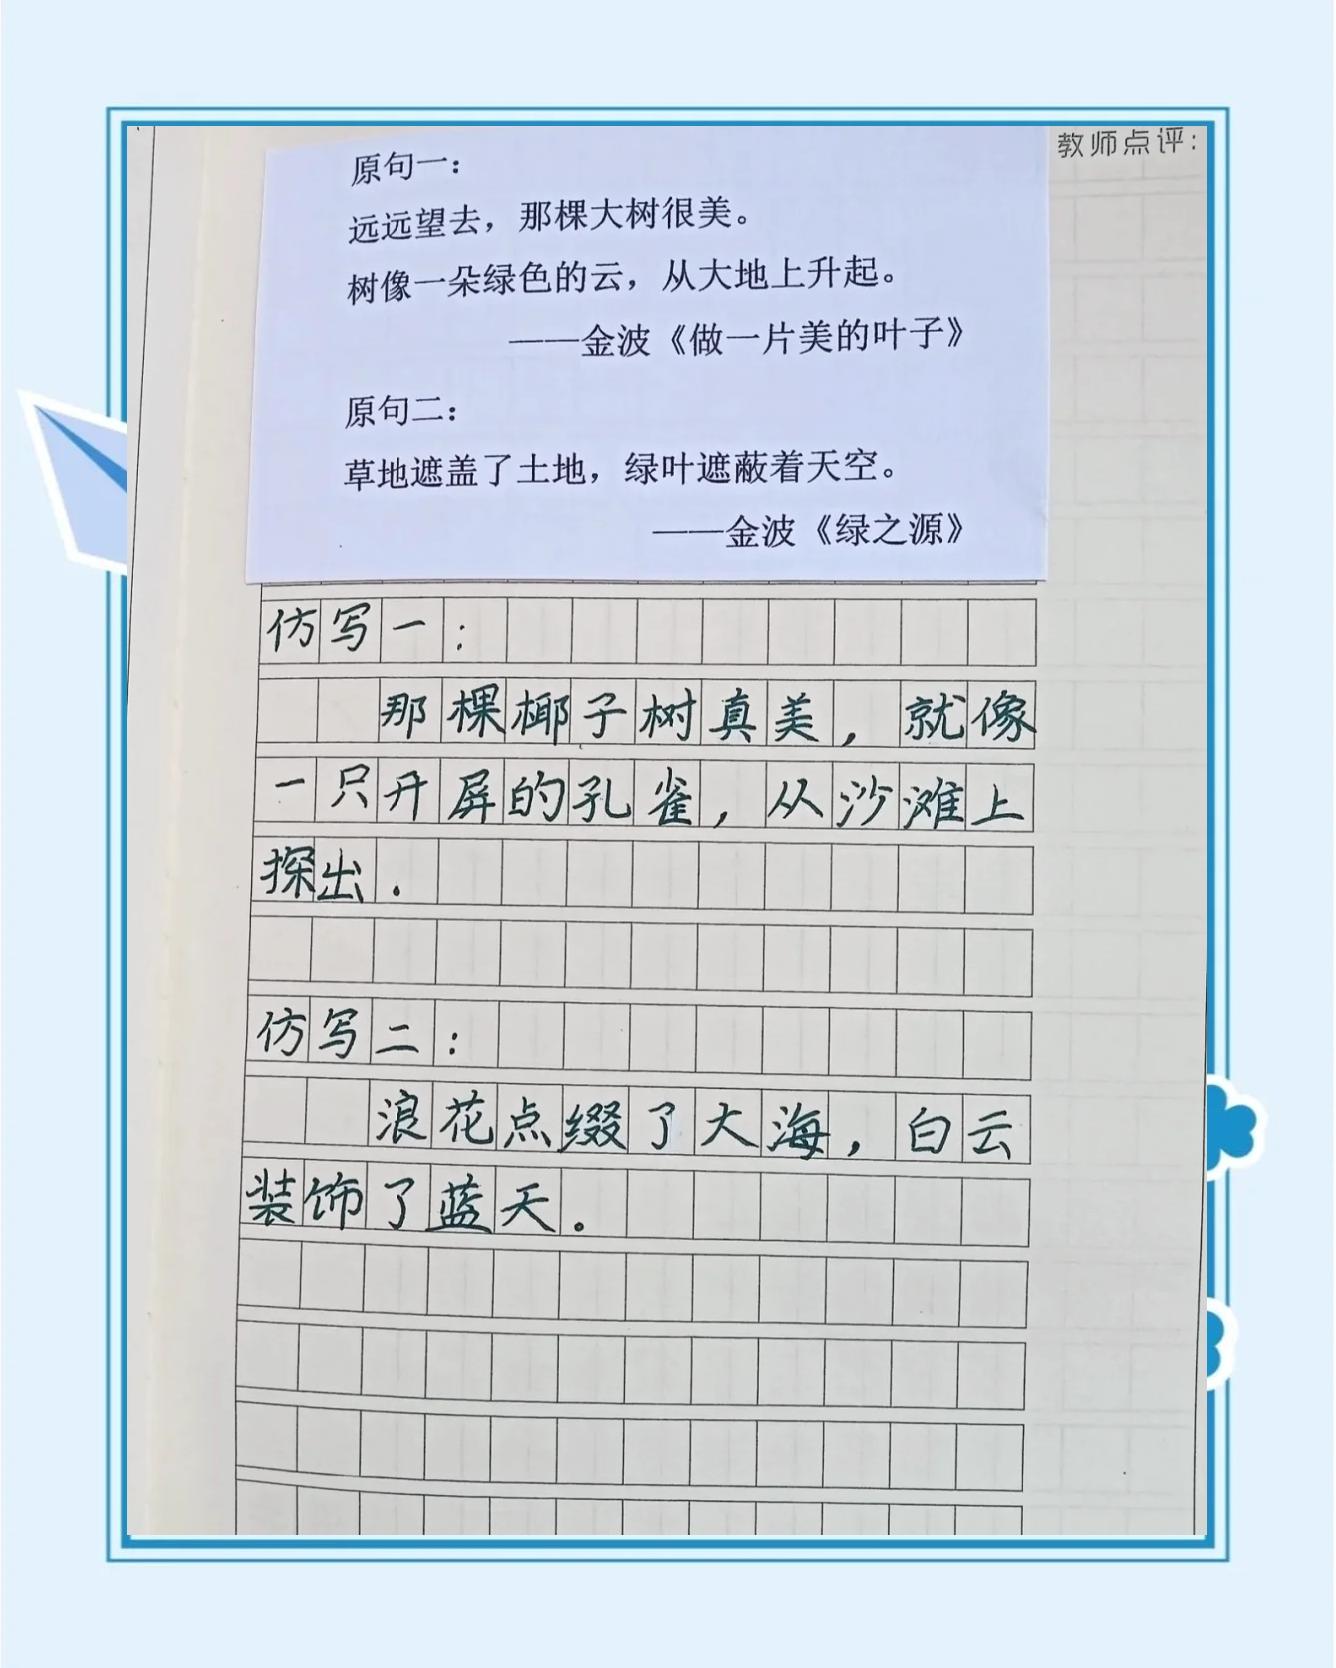 教师点评：
原句一：
远远望去，那棵大树很美。
树像一朵绿色的云，从大地上升起。
——金波《做一片美的叶子》
原句二：
草地遮盖了土地，绿叶遮蔽着天空。
——金波《绿之源》
仿写一：
那棵椰子树真美，就像
一只开屏的孔雀，从沙滩上
探出.
仿写二：
浪花点缀了大海，白云
装饰了蓝天。